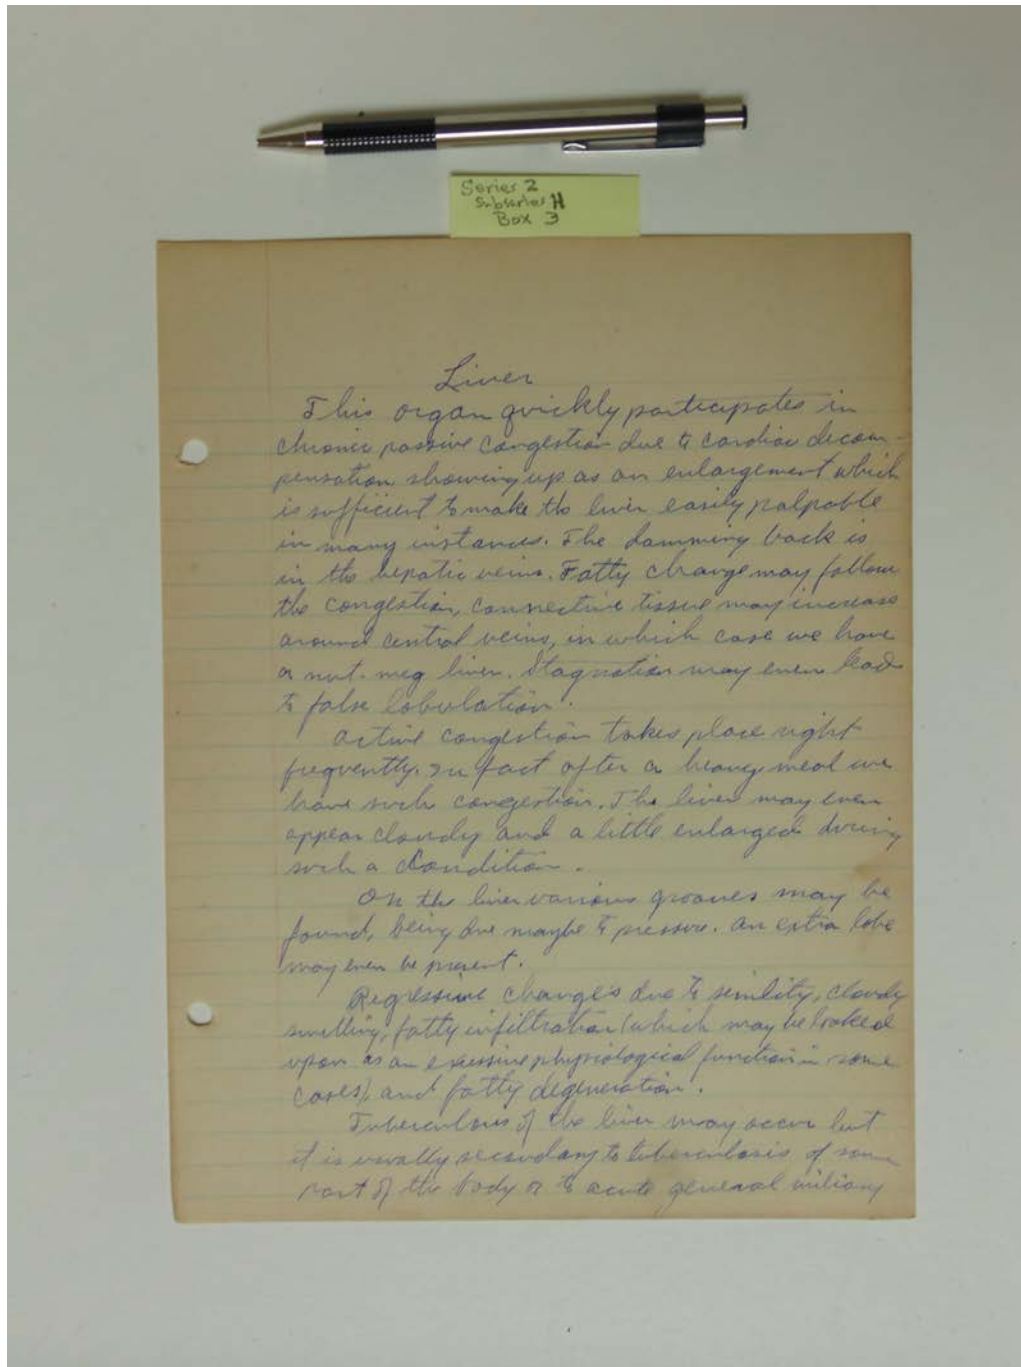 Series 2
Subseries H
Box 3
Liver
This organ quickly participates in
chronic passive congestion due to cardiac decom-
pensation showing up as an enlargement which
is sufficient to make the liver easily palpable
in many instances. The damming back is
in the hepatic veins. Fatty change may follow
the congestion, connective tissue may increase
around central veins, in which case we have
a nut-meg liver. Stagnation may even lead
to false lobulation.
Active congestion takes place right
frequently. In fact after a heavy meal we
have such congestion. The liver may even
appear cloudy and a little enlarged during
such a condition.
On the liver various grooves may be
found, being due maybe to pressure. An extra lobe
may even be present.
Regressive changes due to senility, cloudy
swelling, fatty infiltration (which may be looked
upon as an excessive physiological function in some
cases) and fatty degeneration.
Tuberculosis of the liver may occur but
it is usually secondary to tuberculosis of some
part of the body or to acute general miliary